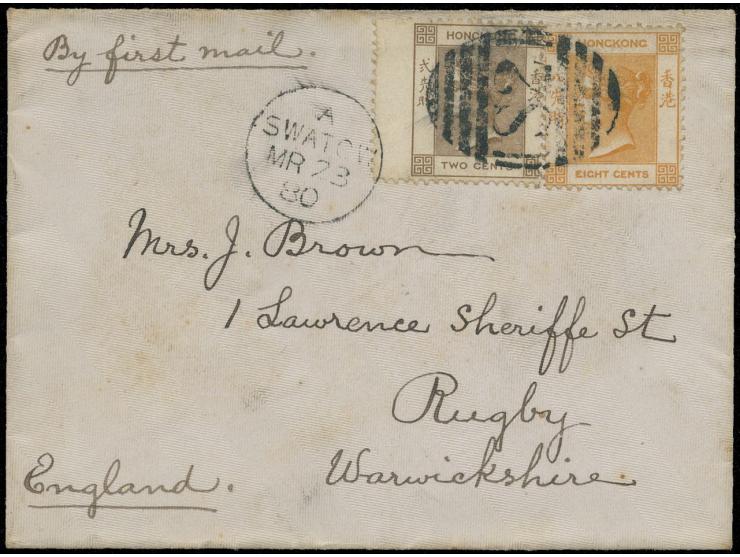 By first mail.
HONGKONG
香港
TWO CENTS
EIGHT CENTS
A
SWATOW
MR 23
80
Mrs. J. Brown
1 Lawrence Sheriffe St
Rugby
Warwickshire.
England.